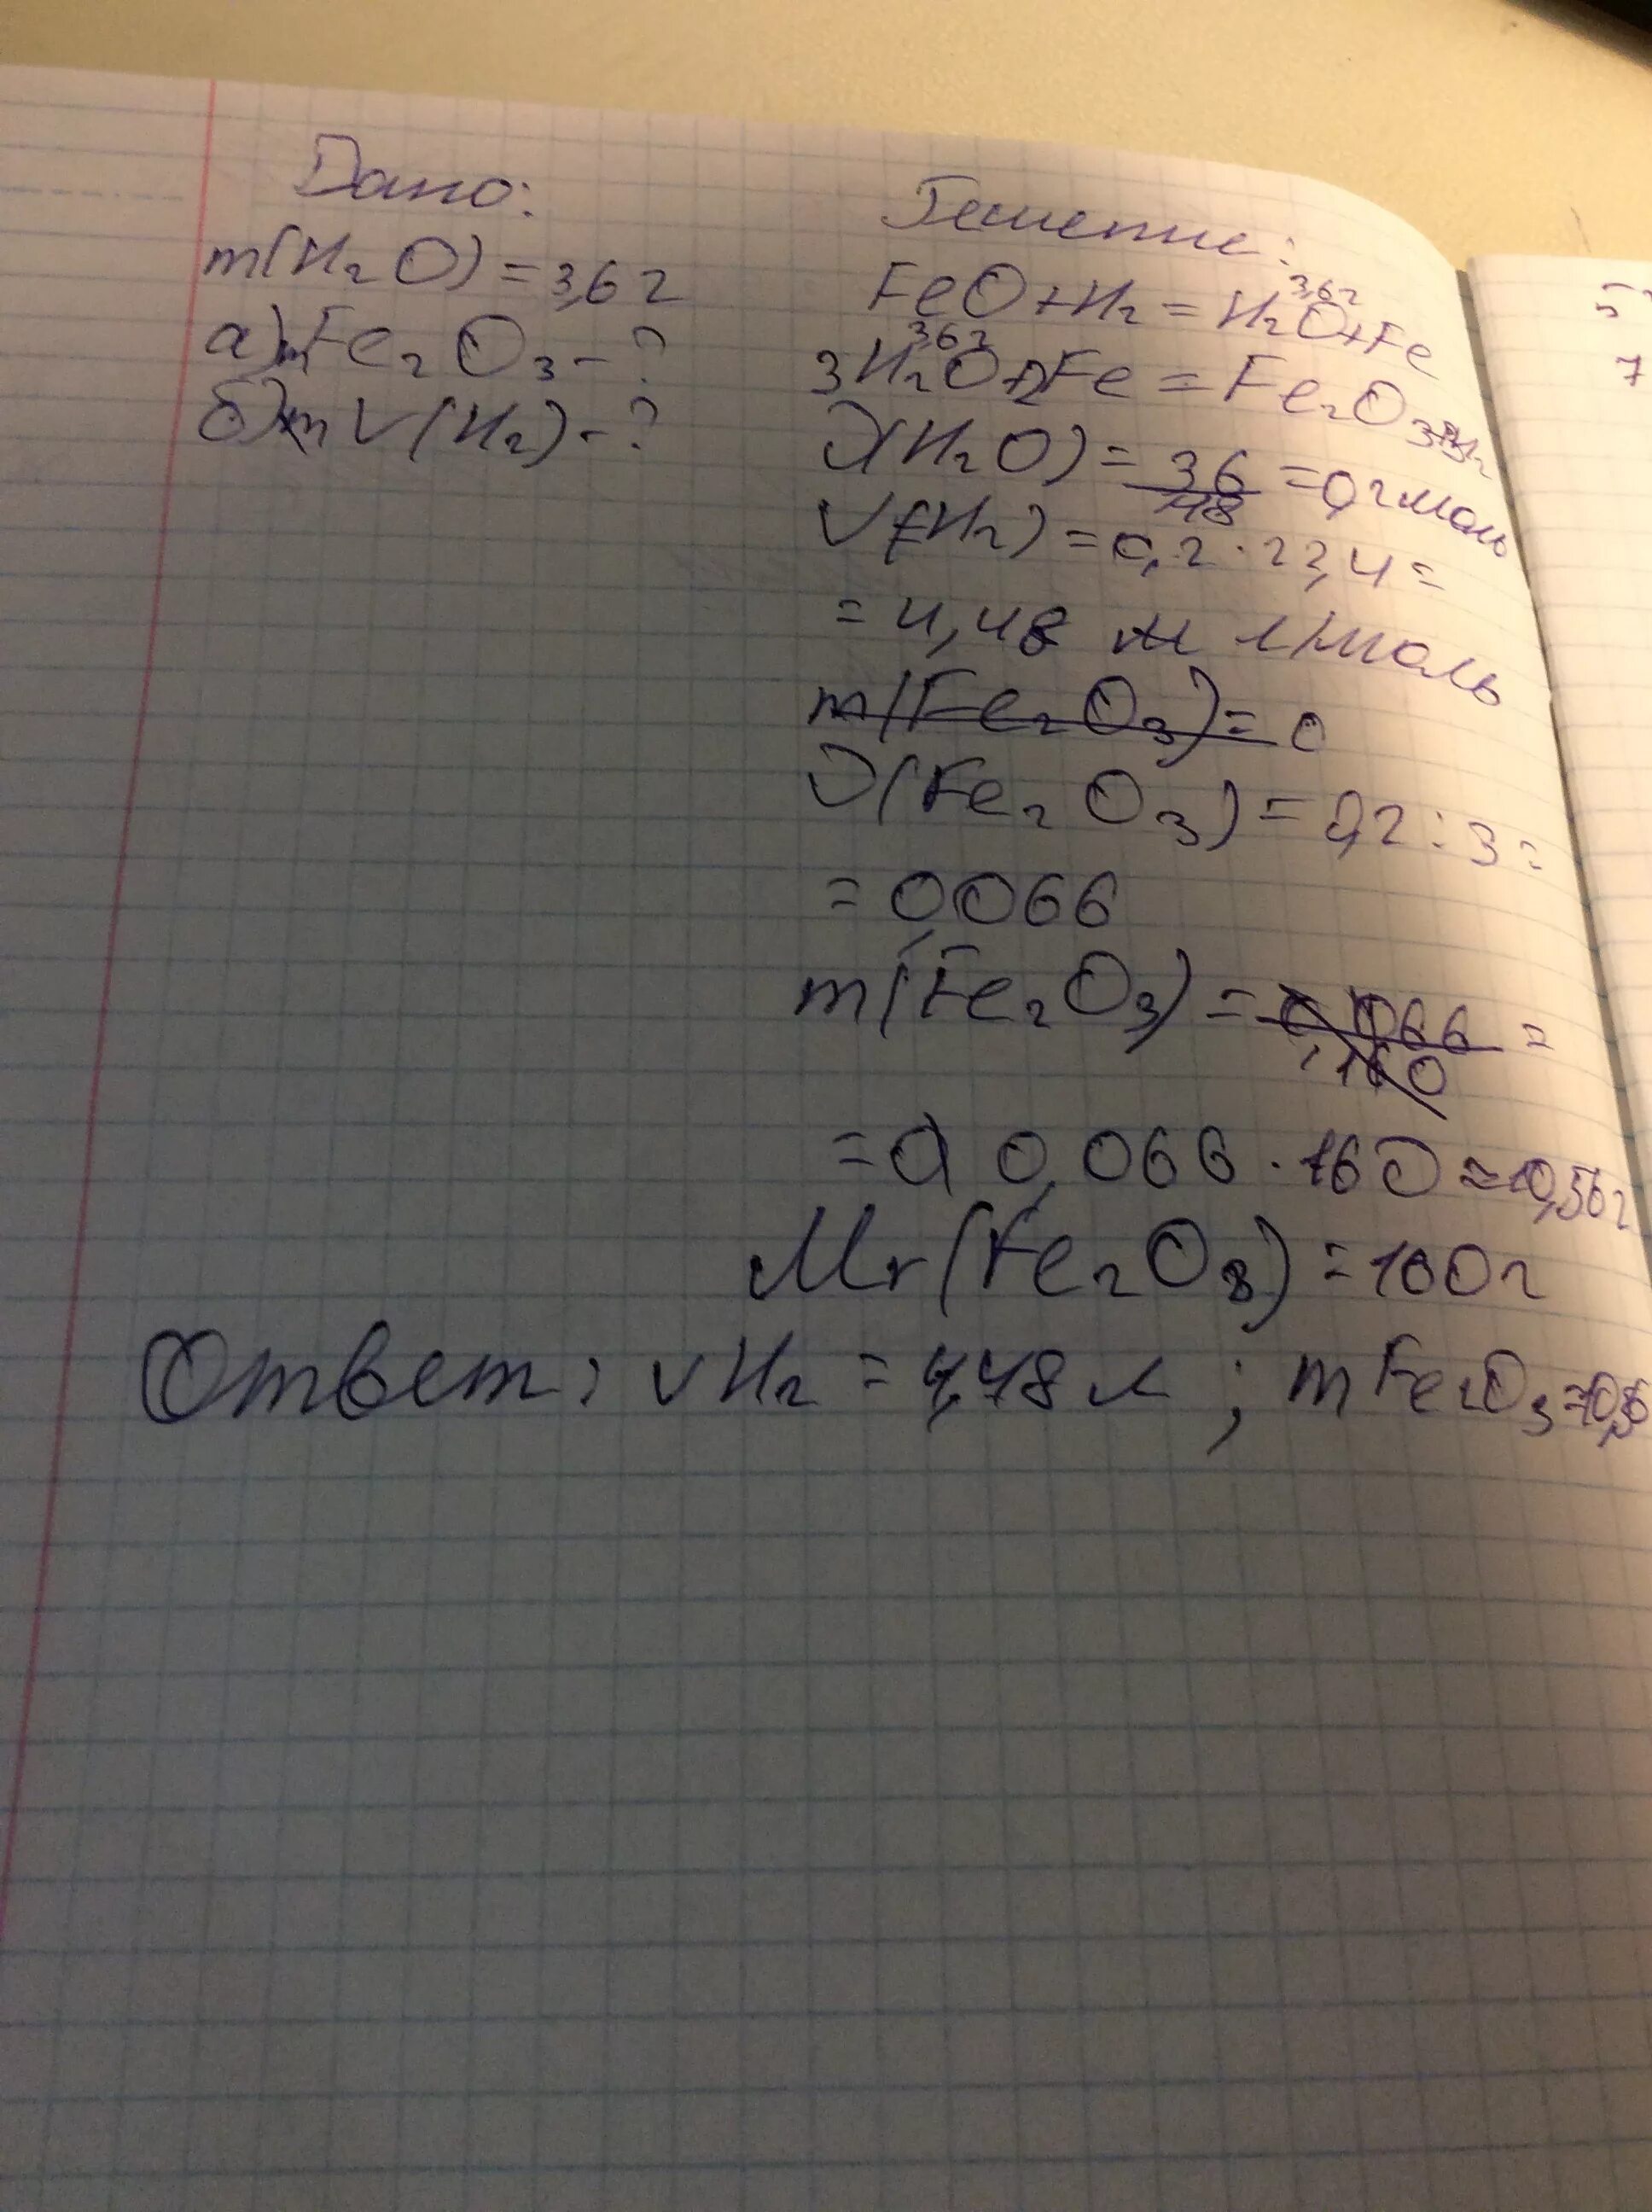 Дано:
m(H₂O) = 3,6 г
а) m Fe₂O₃ - ?
б) V(H₂) - ?
Решение:
FeO + H₂ = H₂O + Fe
3,6 г
3H₂O + 2Fe = Fe₂O₃ + 3H₂
3,6 г
ν(H₂O) = 3,6/18 = 0,2 моль
V(H₂) = 0,2 · 22,4 =
= 4,48 л/моль
m(Fe₂O₃) = 0
ν(Fe₂O₃) = 0,2 : 3 =
= 0,066
m(Fe₂O₃) = 0,066/160 =
= 0,066 · 160 ≈ 10,56 г
Mr(Fe₂O₃) = 160 г
Ответ: V H₂ = 4,48 л; m Fe₂O₃ = 10,56
5
7